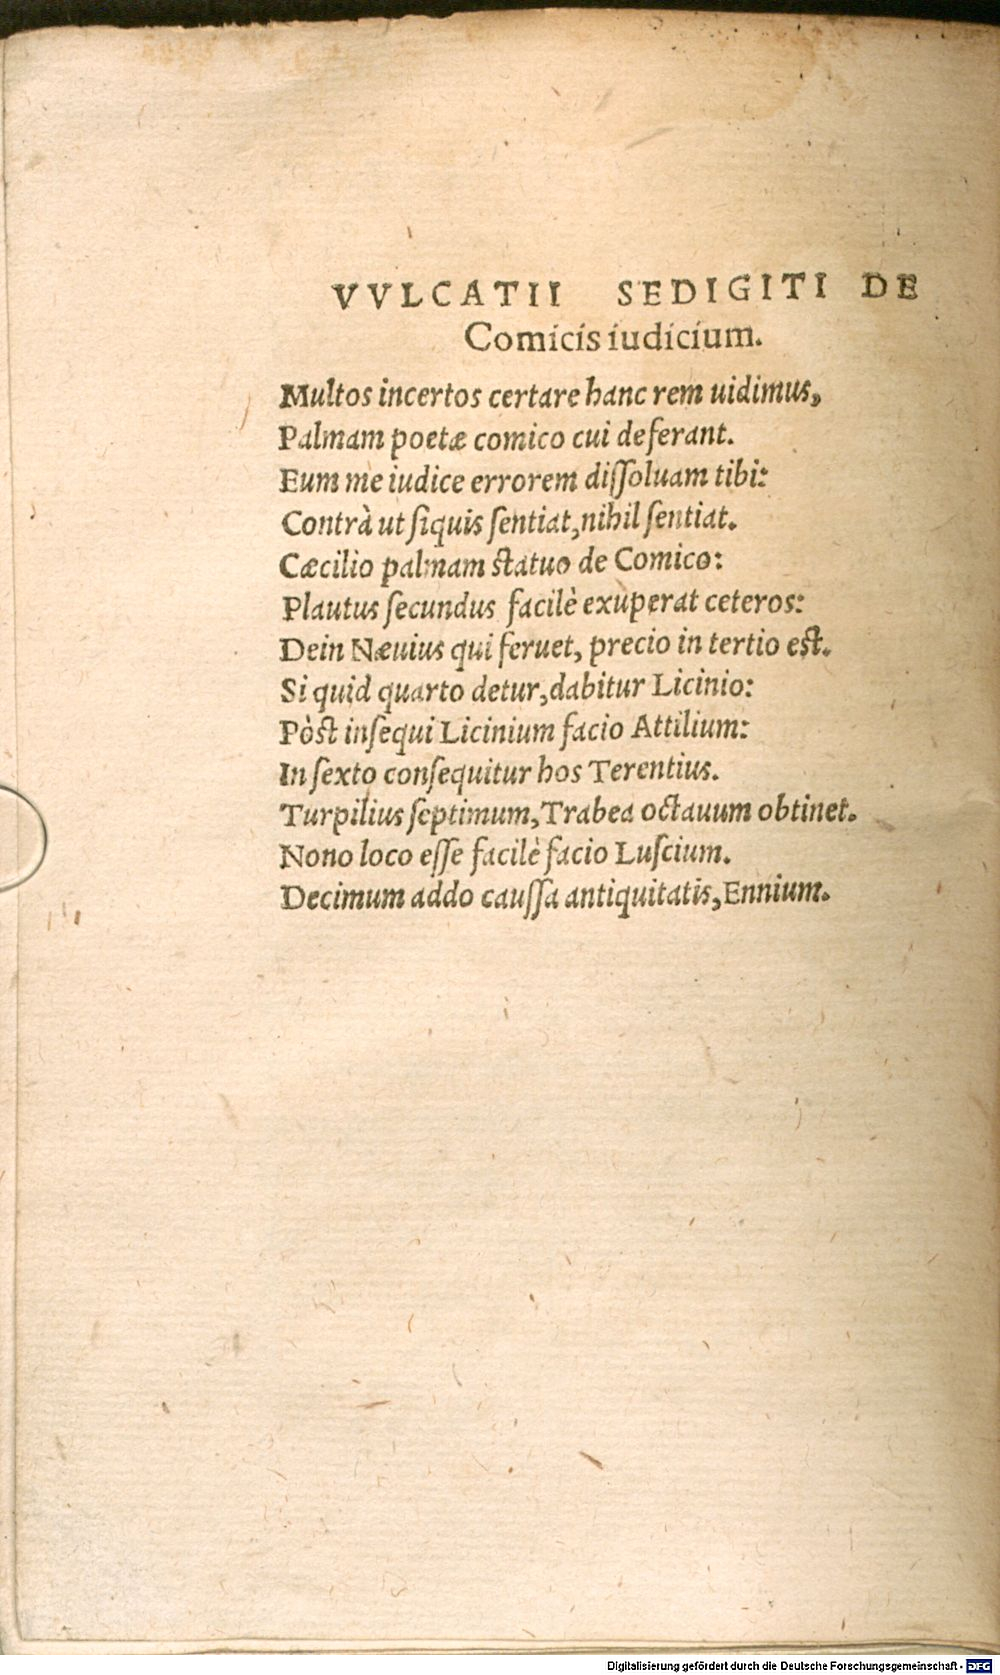 VVLCATII SEDIGITI DE
Comicis iudicium.
Multos incertos certare hanc rem uidimus,
Palmam poetæ comico cui deferant.
Eum me iudice errorem diſſoluam tibi:
Contrà ut ſiquis ſentiat, nihil ſentiat.
Cæcilio palmam statuo de Comico:
Plautus ſecundus facilè exuperat ceteros:
Dein Næuius qui feruet, precio in tertio est.
Si quid quarto detur, dabitur Licinio:
Pòst inſequi Licinium facio Attilium:
In ſexto conſequitur hos Terentius.
Turpilius ſeptimum, Trabea octauum obtinet.
Nono loco eſſe facilè facio Luſcium.
Decimum addo cauſſa antiquitatis, Ennium.
Digitalisierung gefördert durch die Deutsche Forschungsgemeinschaft - DFG